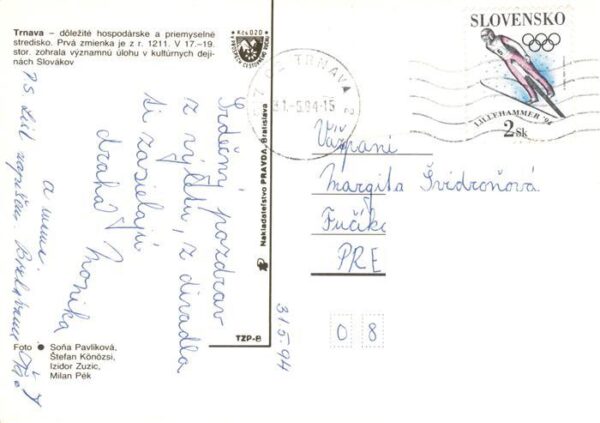 Trnava – dôležité hospodárske a priemyselné
stredisko. Prvá zmienka je z r. 1211. V 17.–19.
stor. zohrala významnú úlohu v kultúrnych deji-
nách Slovákov
Kčs 0,20
Srdečný pozdrav
z výletu, z divadla
ti zasielajú
drahá Monika
a mme.
PS List napíšem.
Foto ● Soňa Pavlíková,
Štefan Könözsi,
Izidor Zuzic,
Milan Pék
Nakladateľstvo PRAVDA, Bratislava
TZP-B
31.5.94
TRNAVA 2
31.-5.94-15
SLOVENSKO
LILLEHAMMER '94
2 Sk
Vážpani
Margita Švidroňová
Fučík
PRE
0 8